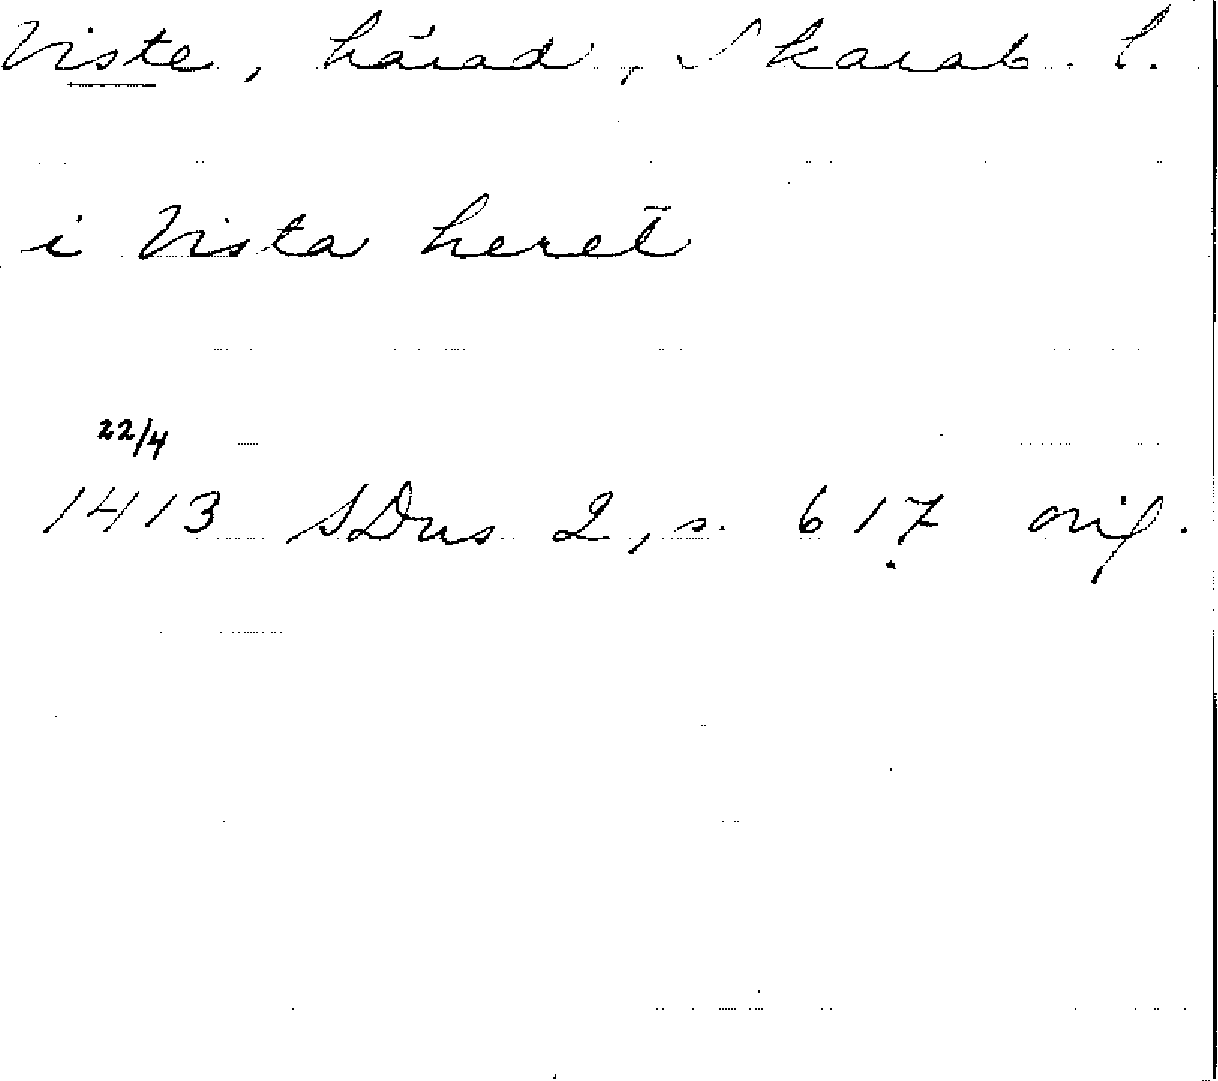 Viste, härad, Skarab. l.
i Vista heret̄
22/4
1413 SDns 2, s. 617 orig.